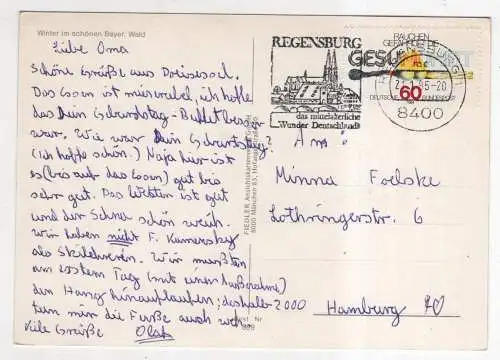 Winter im schönen Bayer. Wald
Liebe Oma
Schöne Grüße aus
Das Essen ist miserabel, ich hoffe
das Dein Geburtstag-Buffet besser
war. Wie war Dein Geburtstag?
(ich hoffe schön.) Naja hier ist
es (bis auf das Essen) gut bis
sehr gut. Das ist gut
und der Schnee schön weich.
Wir haben nicht F.
als Skilehrerin. Wir mußten
am ersten Tag (mit einer Ausnahme)
den Hang hinauflaufen; deshalb
tun mir die Füße auch weh.
Viele Grüße Olaf
FIEDLER, Ansichtskartenverlag
8000 München 83,
REGENSBURG
das mittelalterliche
Wunder Deutschlands
RAUCHEN
GEFÄHRDET
GESUNDHEIT
60
DEUTSCHE BUNDESPOST
REGENSBURG 1
8400
An:
Minna
Lothringerstr. 6
2000
Hamburg 70